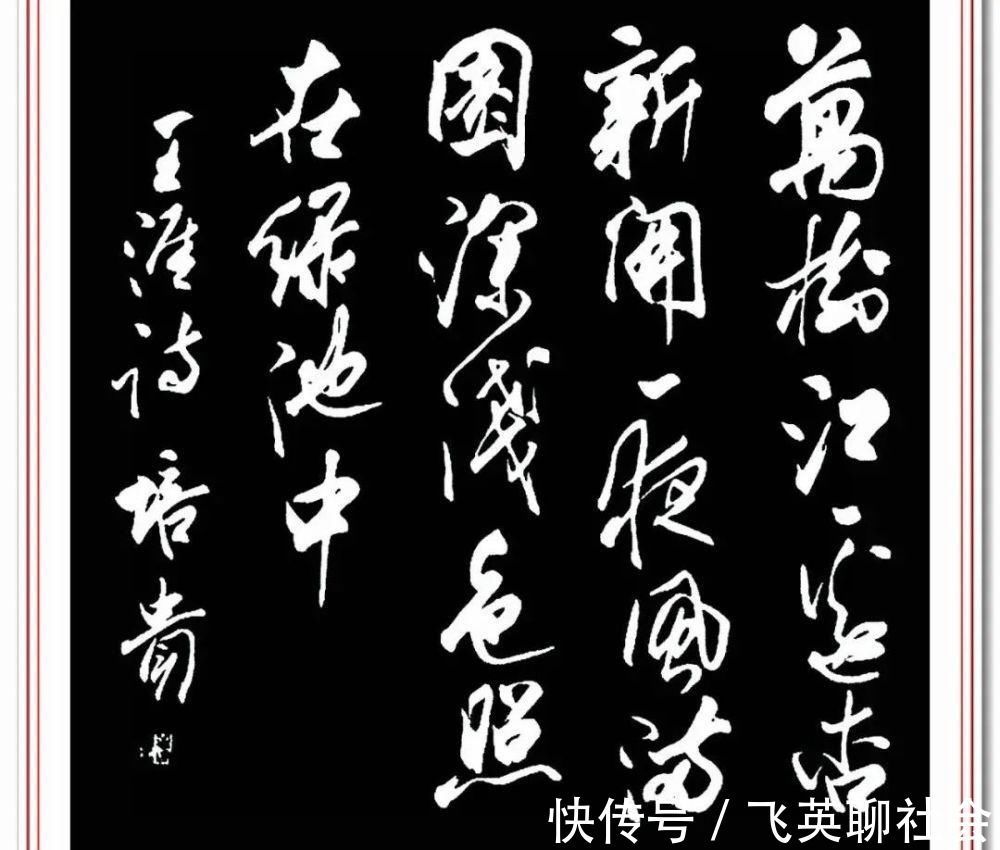 萬樹江邊杏
新開一夜風滿
園深淺色照
在緑池中
王涯詩 培貴
快传号 / 飞英聊社会